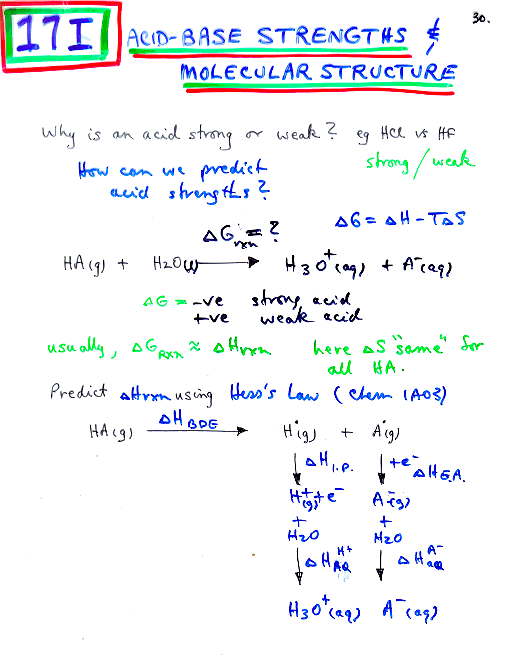 30.
17I ACID-BASE STRENGTHS &
MOLECULAR STRUCTURE
Why is an acid strong or weak? eg HCl vs HF
strong/weak
How can we predict
acid strengths?
ΔG = ΔH - TΔS
ΔG°rxn = ?
HA(g) + H2O(l) → H3O+(aq) + A-(aq)
ΔG = -ve strong acid
+ve weak acid
usually, ΔGRxn ≈ ΔHrxn here ΔS "same" for
all HA.
Predict ΔHrxn using Hess's Law (Chem 1A03)
HA(g) ΔHBDE → H·(g) + A·(g)
↓ ΔH I.P. ↓ +e- ΔH E.A.
H+(g) + e- A-(g)
+ +
H2O H2O
↓ ΔH AQ H+ ↓ ΔH aq A-
H3O+(aq) A-(aq)